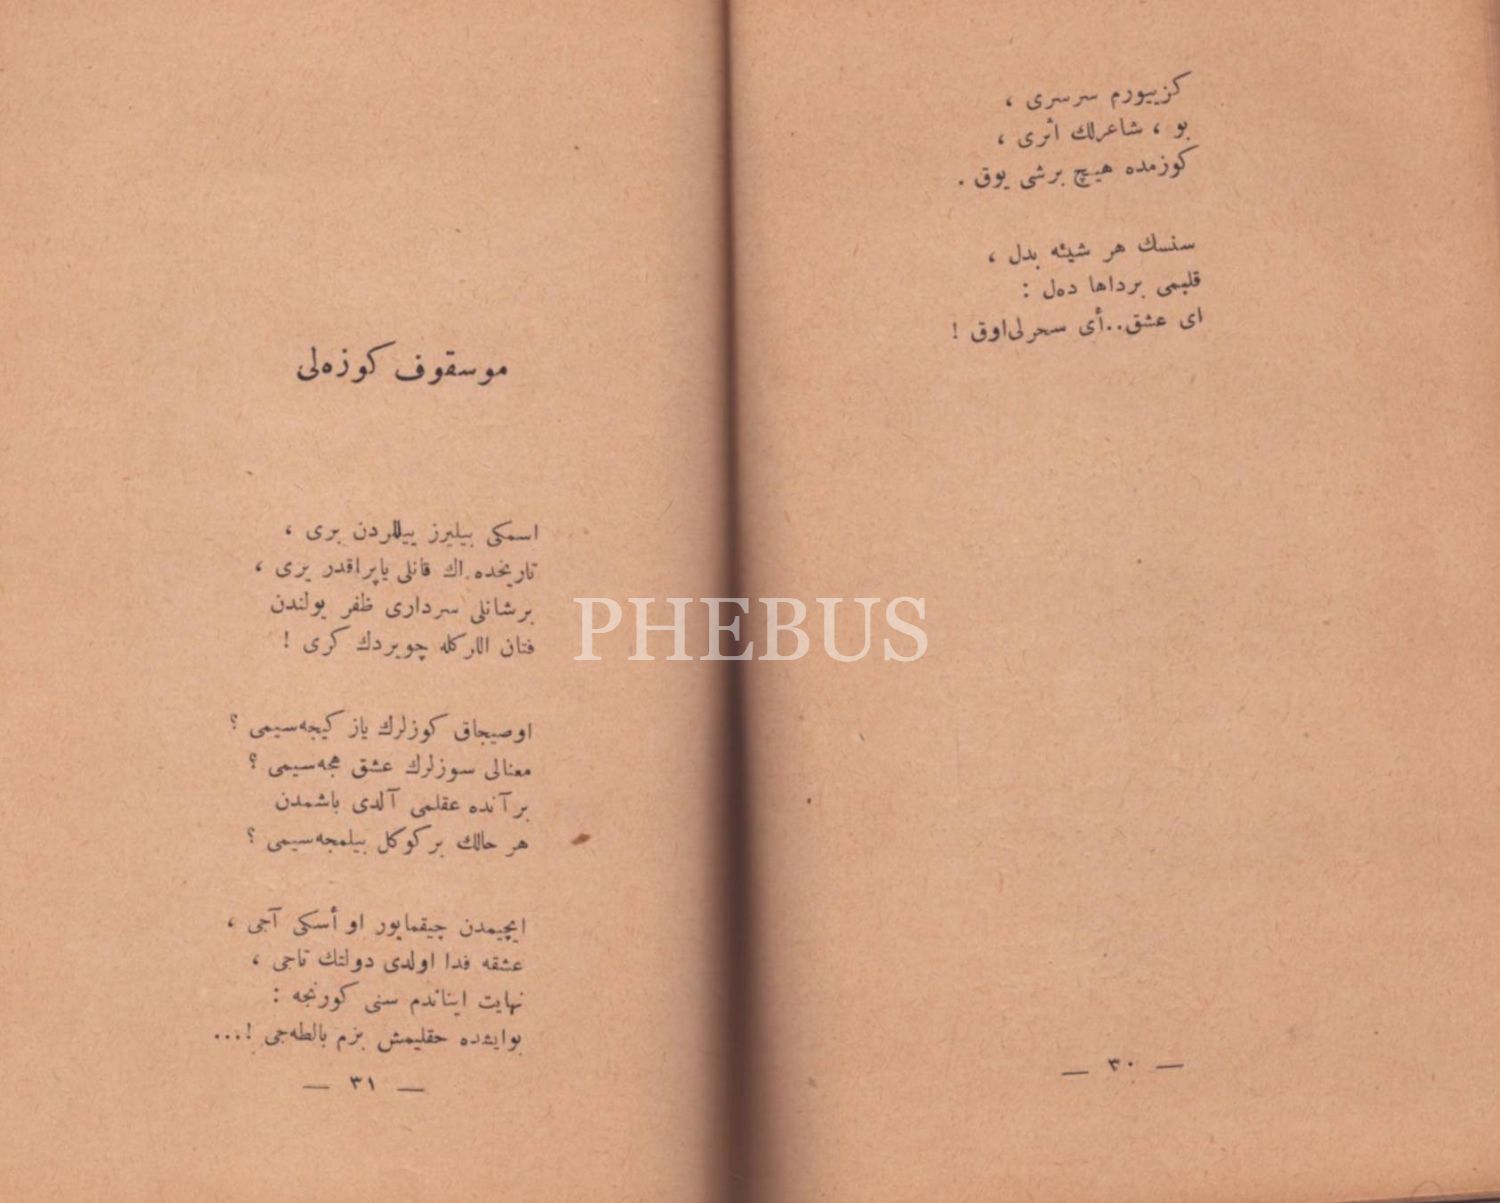 كزييورم سرسری ،
بو ، شاعرلك اثری ،
كوزمده هيچ برشی يوق .
سنسك هر شيئه بدل ،
قلبمی برداها دەل :
ای عشق..أی سحرلی‌اوق !
— ٣٠ —
موسقوف كوزەلی
اسمكی بيليرز ييللردن بری ،
تاريخده اك قانلی ياپراقدر يری ،
برشانلی سرداری ظفر يولندن
فتان اللركله چويردك كری !
اوصيجاق كوزلرك ياز كيجەسيمی ؟
معنالی سوزلرك عشق هجەسيمی ؟
برآنده عقلمی آلدی باشمدن
هر حالك بركوكل بيلمجەسيمی ؟
ايچيمدن چيقمايور او أسكی آجی ،
عشقه فدا اولدی دولتك تاجی ،
نهايت ايناندم سنی كورنجه :
بوايشده حقليمش بزم بالطەجی !...
— ٣١ —
PHEBUS